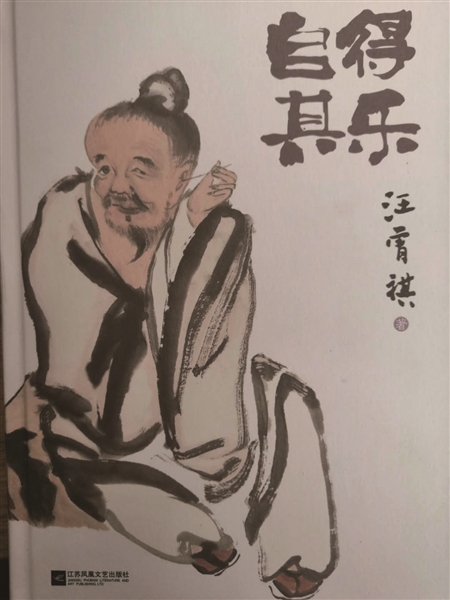 自得
其乐
汪曾祺
著
江苏凤凰文艺出版社
JIANGSU PHOENIX LITERATURE AND
ART PUBLISHING, LTD